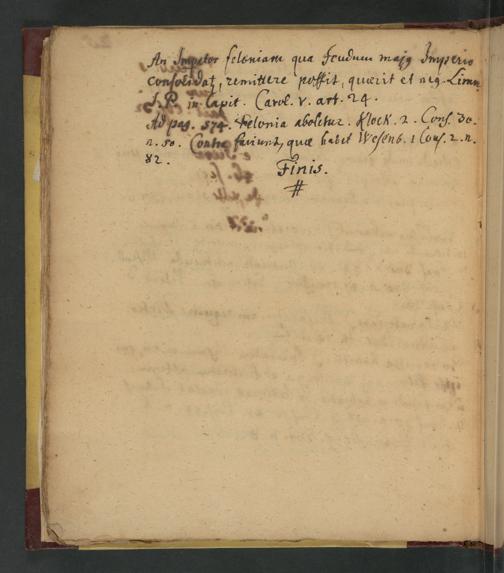 An Impetor feloniam qua feudum majq Imperio
consolidat, remittere possit, querit et neg. Limn.
J. P. in Capit. Carol. v. art. 24.
Ad pag. 574. Felonia aboletur. Klock. 2. Cons. 30.
n. 50. Contra faciunt, quæ habet Wesenb. 1 Cons. 2. n.
82. Finis.